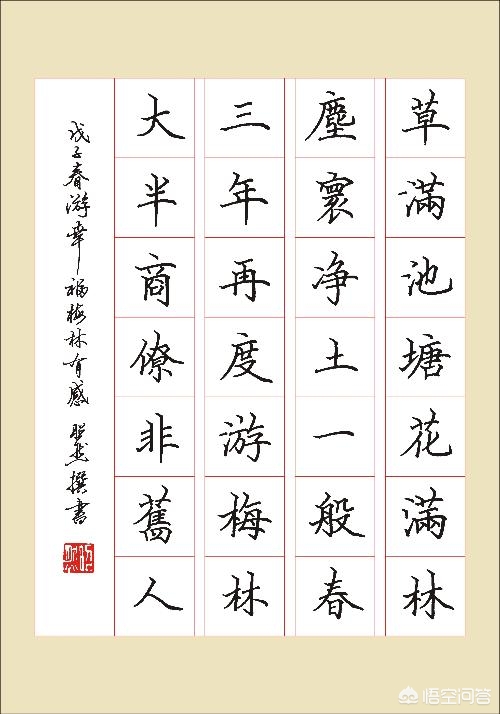 草滿池塘花滿林
塵寰净土一般春
三年再度游梅林
大半商僚非舊人
戊子春游幸福梅林有感 撰書
悟空问答